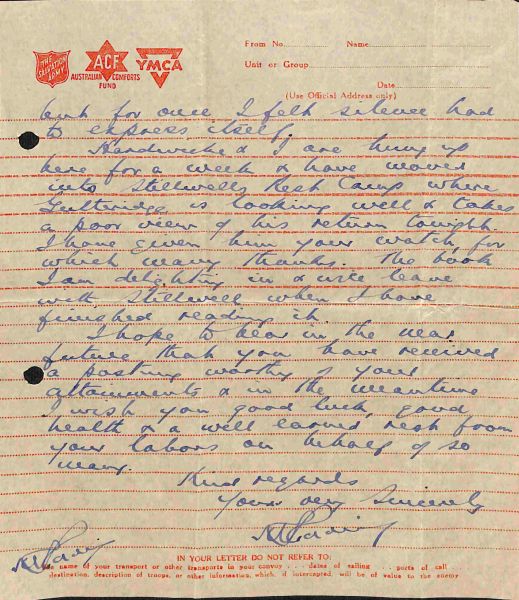 THE SALVATION ARMY
ACF
AUSTRALIAN COMFORTS FUND
YMCA
From No. Name
Unit or Group
Date
(Use Official Address only)
but for once I felt silence had
to express itself.
Hardwicke & I are hung up
here for a week & have moved
into Stillwells Rest Camp where
Guttridge is looking well & takes
a poor view of his return tonight.
I have given him your watch for
which many thanks. The book
I am delighting in & will leave
with Stillwell when I have
finished reading it.
I hope to hear in the near
future that you have received
a posting worthy of your
attainments & in the meantime
I wish you good luck, good
health & a well earned rest from
your labors on behalf of so
many.
Kind regards
Yours very Sincerely
IN YOUR LETTER DO NOT REFER TO:
name of your transport or other transports in your convoy . . . dates of sailing . . . ports of call . . .
destination, description of troops, or other information, which, if intercepted, will be of value to the enemy